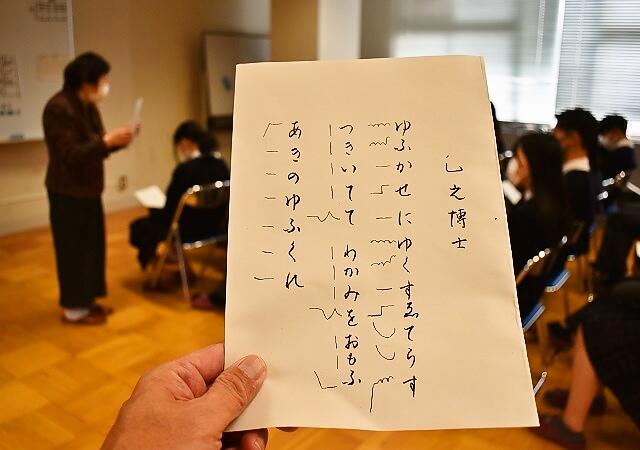 乙之博士
ゆふかせにゆくすゑてらす
つきいてて わかみをおもふ
あきのゆふくれ